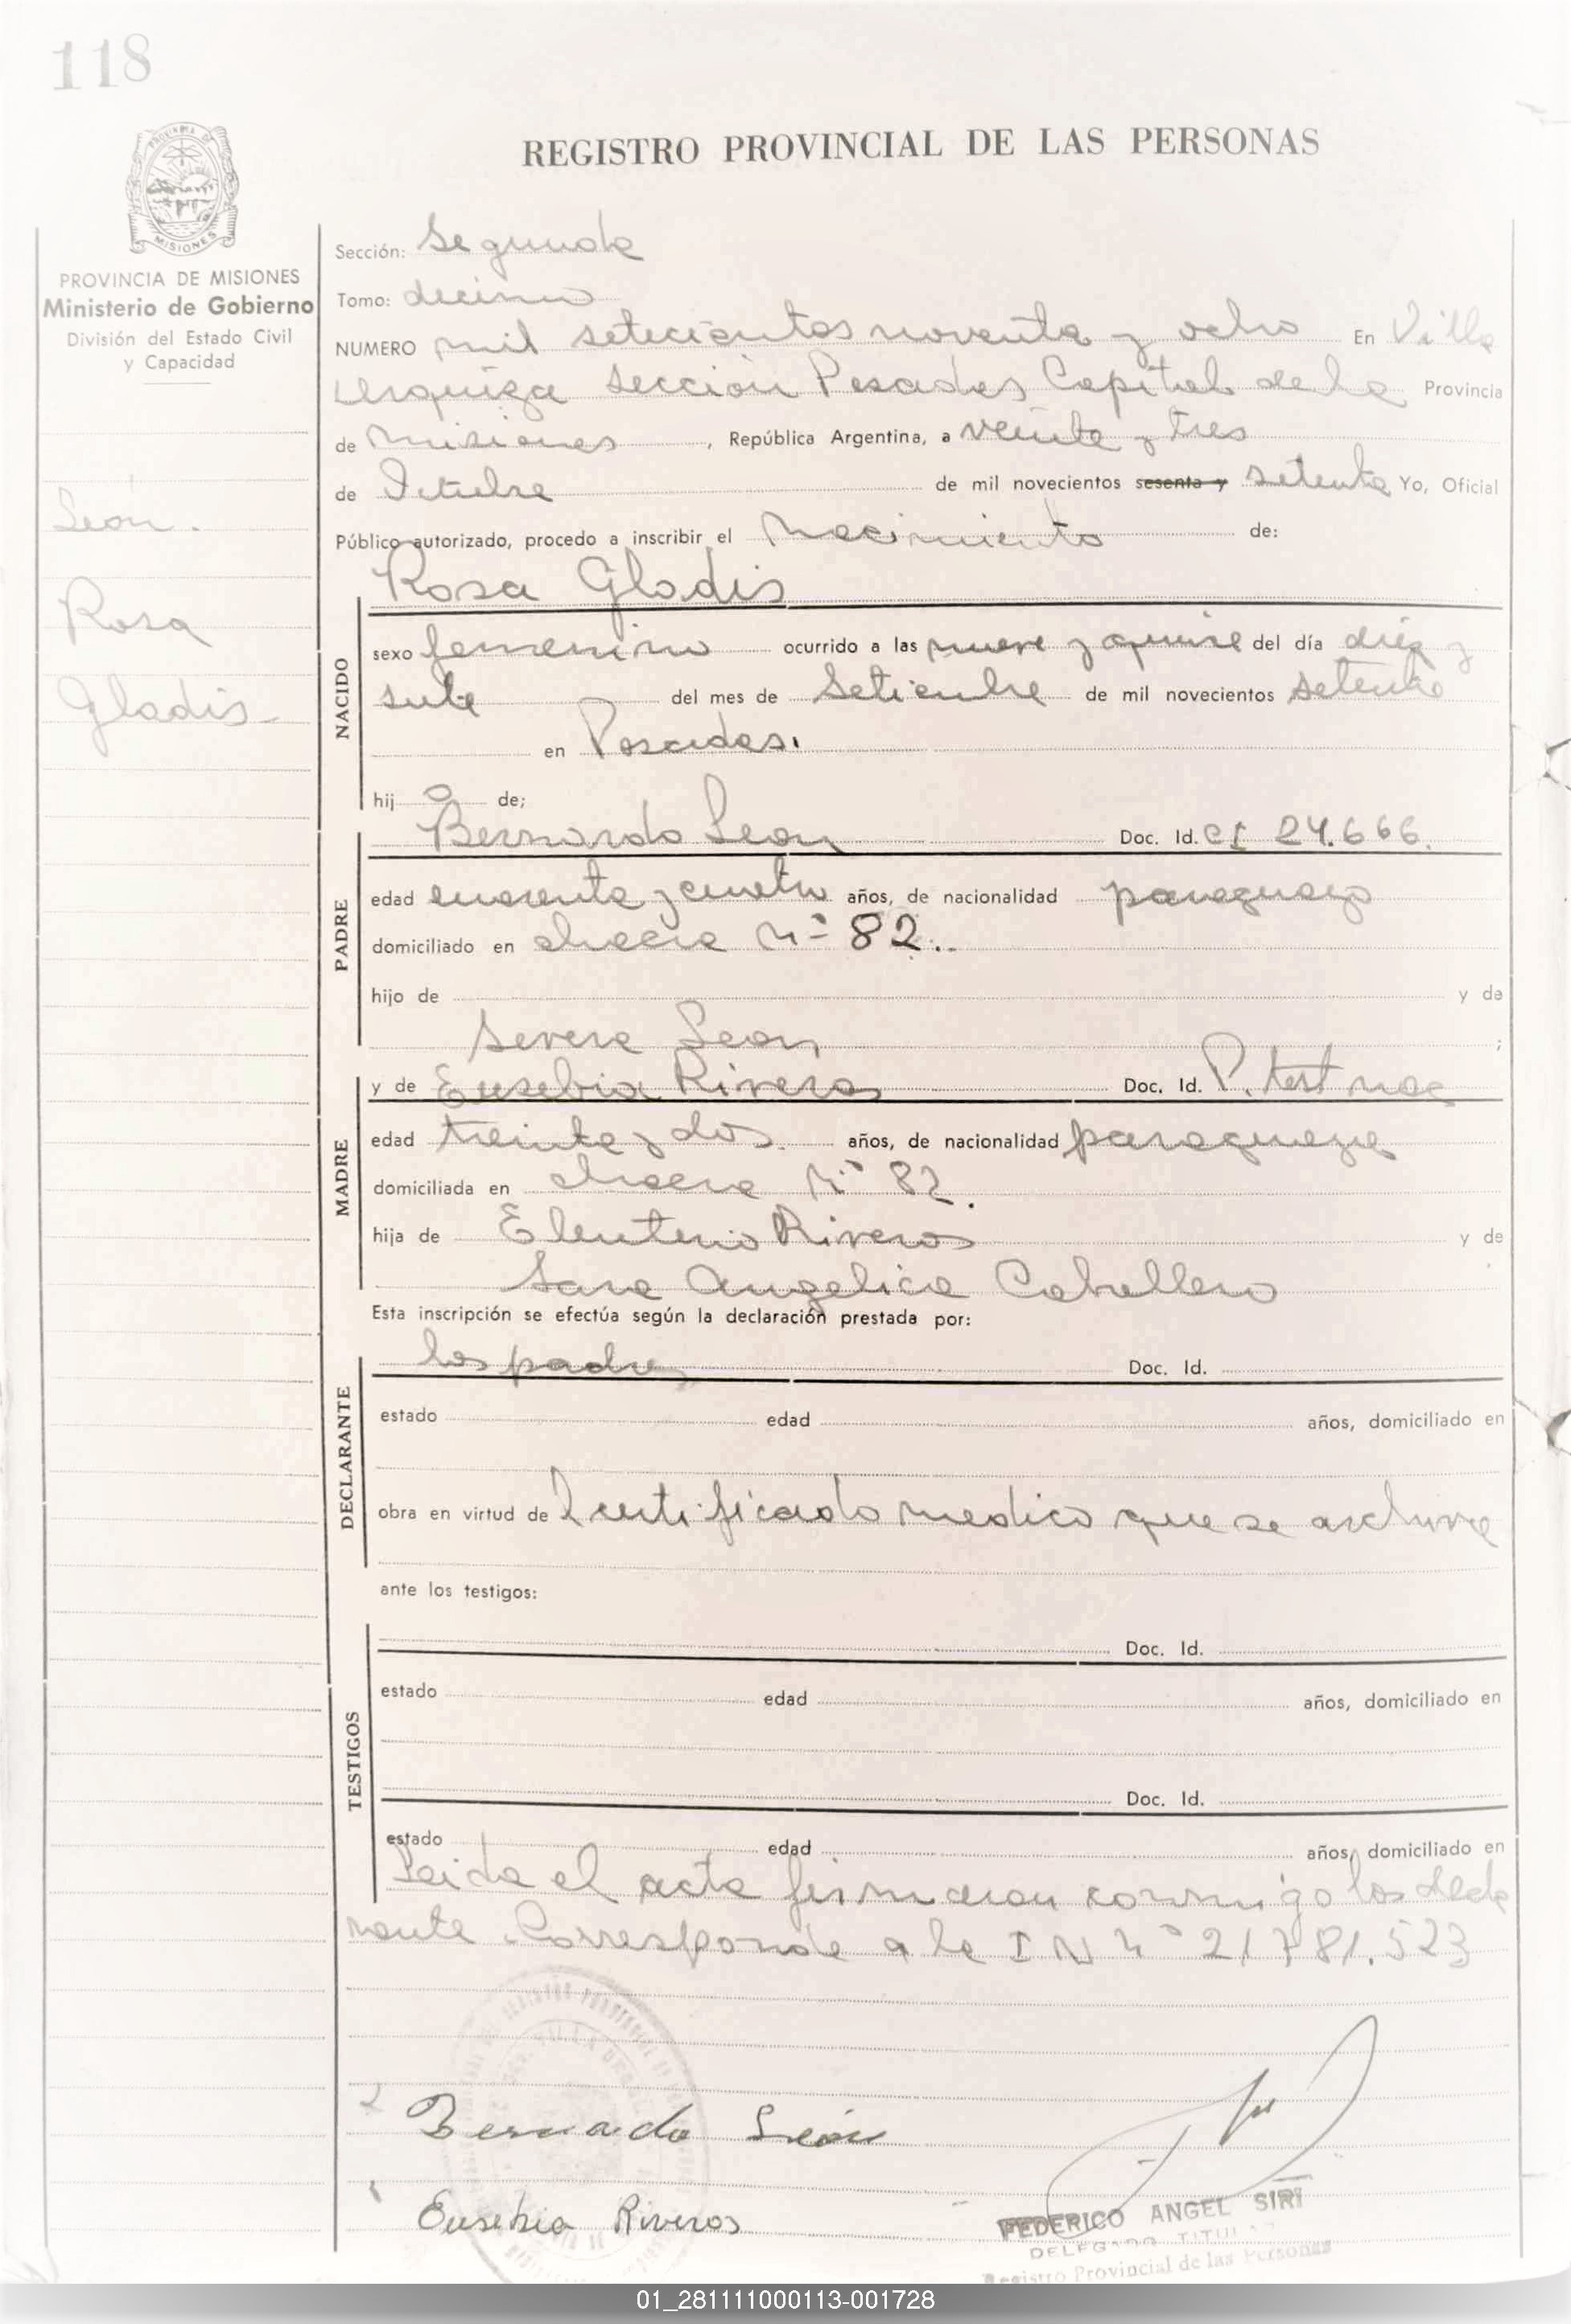 118
REGISTRO PROVINCIAL DE LAS PERSONAS
MISIONES
PROVINCIA DE MISIONES
Ministerio de Gobierno
División del Estado Civil
y Capacidad
León.
Rosa
Gladis
Sección: Segunda
Tomo: decimo
NUMERO mil setecientos noventa y ocho En Villa
Urquiza Sección Posadas Capital de la Provincia
de Misiones, República Argentina, a veinte y tres
de Octubre de mil novecientos sesenta y setenta Yo, Oficial
Público autorizado, procedo a inscribir el Nacimiento de:
Rosa Gladis
NACIDO
sexo femenino ocurrido a las nueve y quince del día diez y
siete del mes de Setiembre de mil novecientos setenta
en Posadas.
hij a de;
PADRE
Bernardo Leon Doc. Id. CI 24.666.
edad cuarenta y cuatro años, de nacionalidad paraguayo
domiciliado en chacra Nº 82.
hijo de y de
Severa Leon ;
MADRE
y de Eusebia Riveros Doc. Id. P. test nac
edad treinta y dos años, de nacionalidad paraguaya
domiciliada en chacra Nº 82.
hija de Eleuterio Riveros y de
Sara Angelica Caballero
Esta inscripción se efectúa según la declaración prestada por:
DECLARANTE
los padres Doc. Id.
estado edad años, domiciliado en
obra en virtud de certificado medico que se archiva
ante los testigos:
TESTIGOS
Doc. Id.
estado edad años, domiciliado en
Doc. Id.
estado edad años, domiciliado en
Leida el acta firmaron conmigo los decla
rante. Corresponde a la I N Nº 21781.523
Bernardo León
Eusebia Riveros
FEDERICO ANGEL SIRI
DELEGADO TITULAR
Registro Provincial de las Personas
01_281111000113-001728